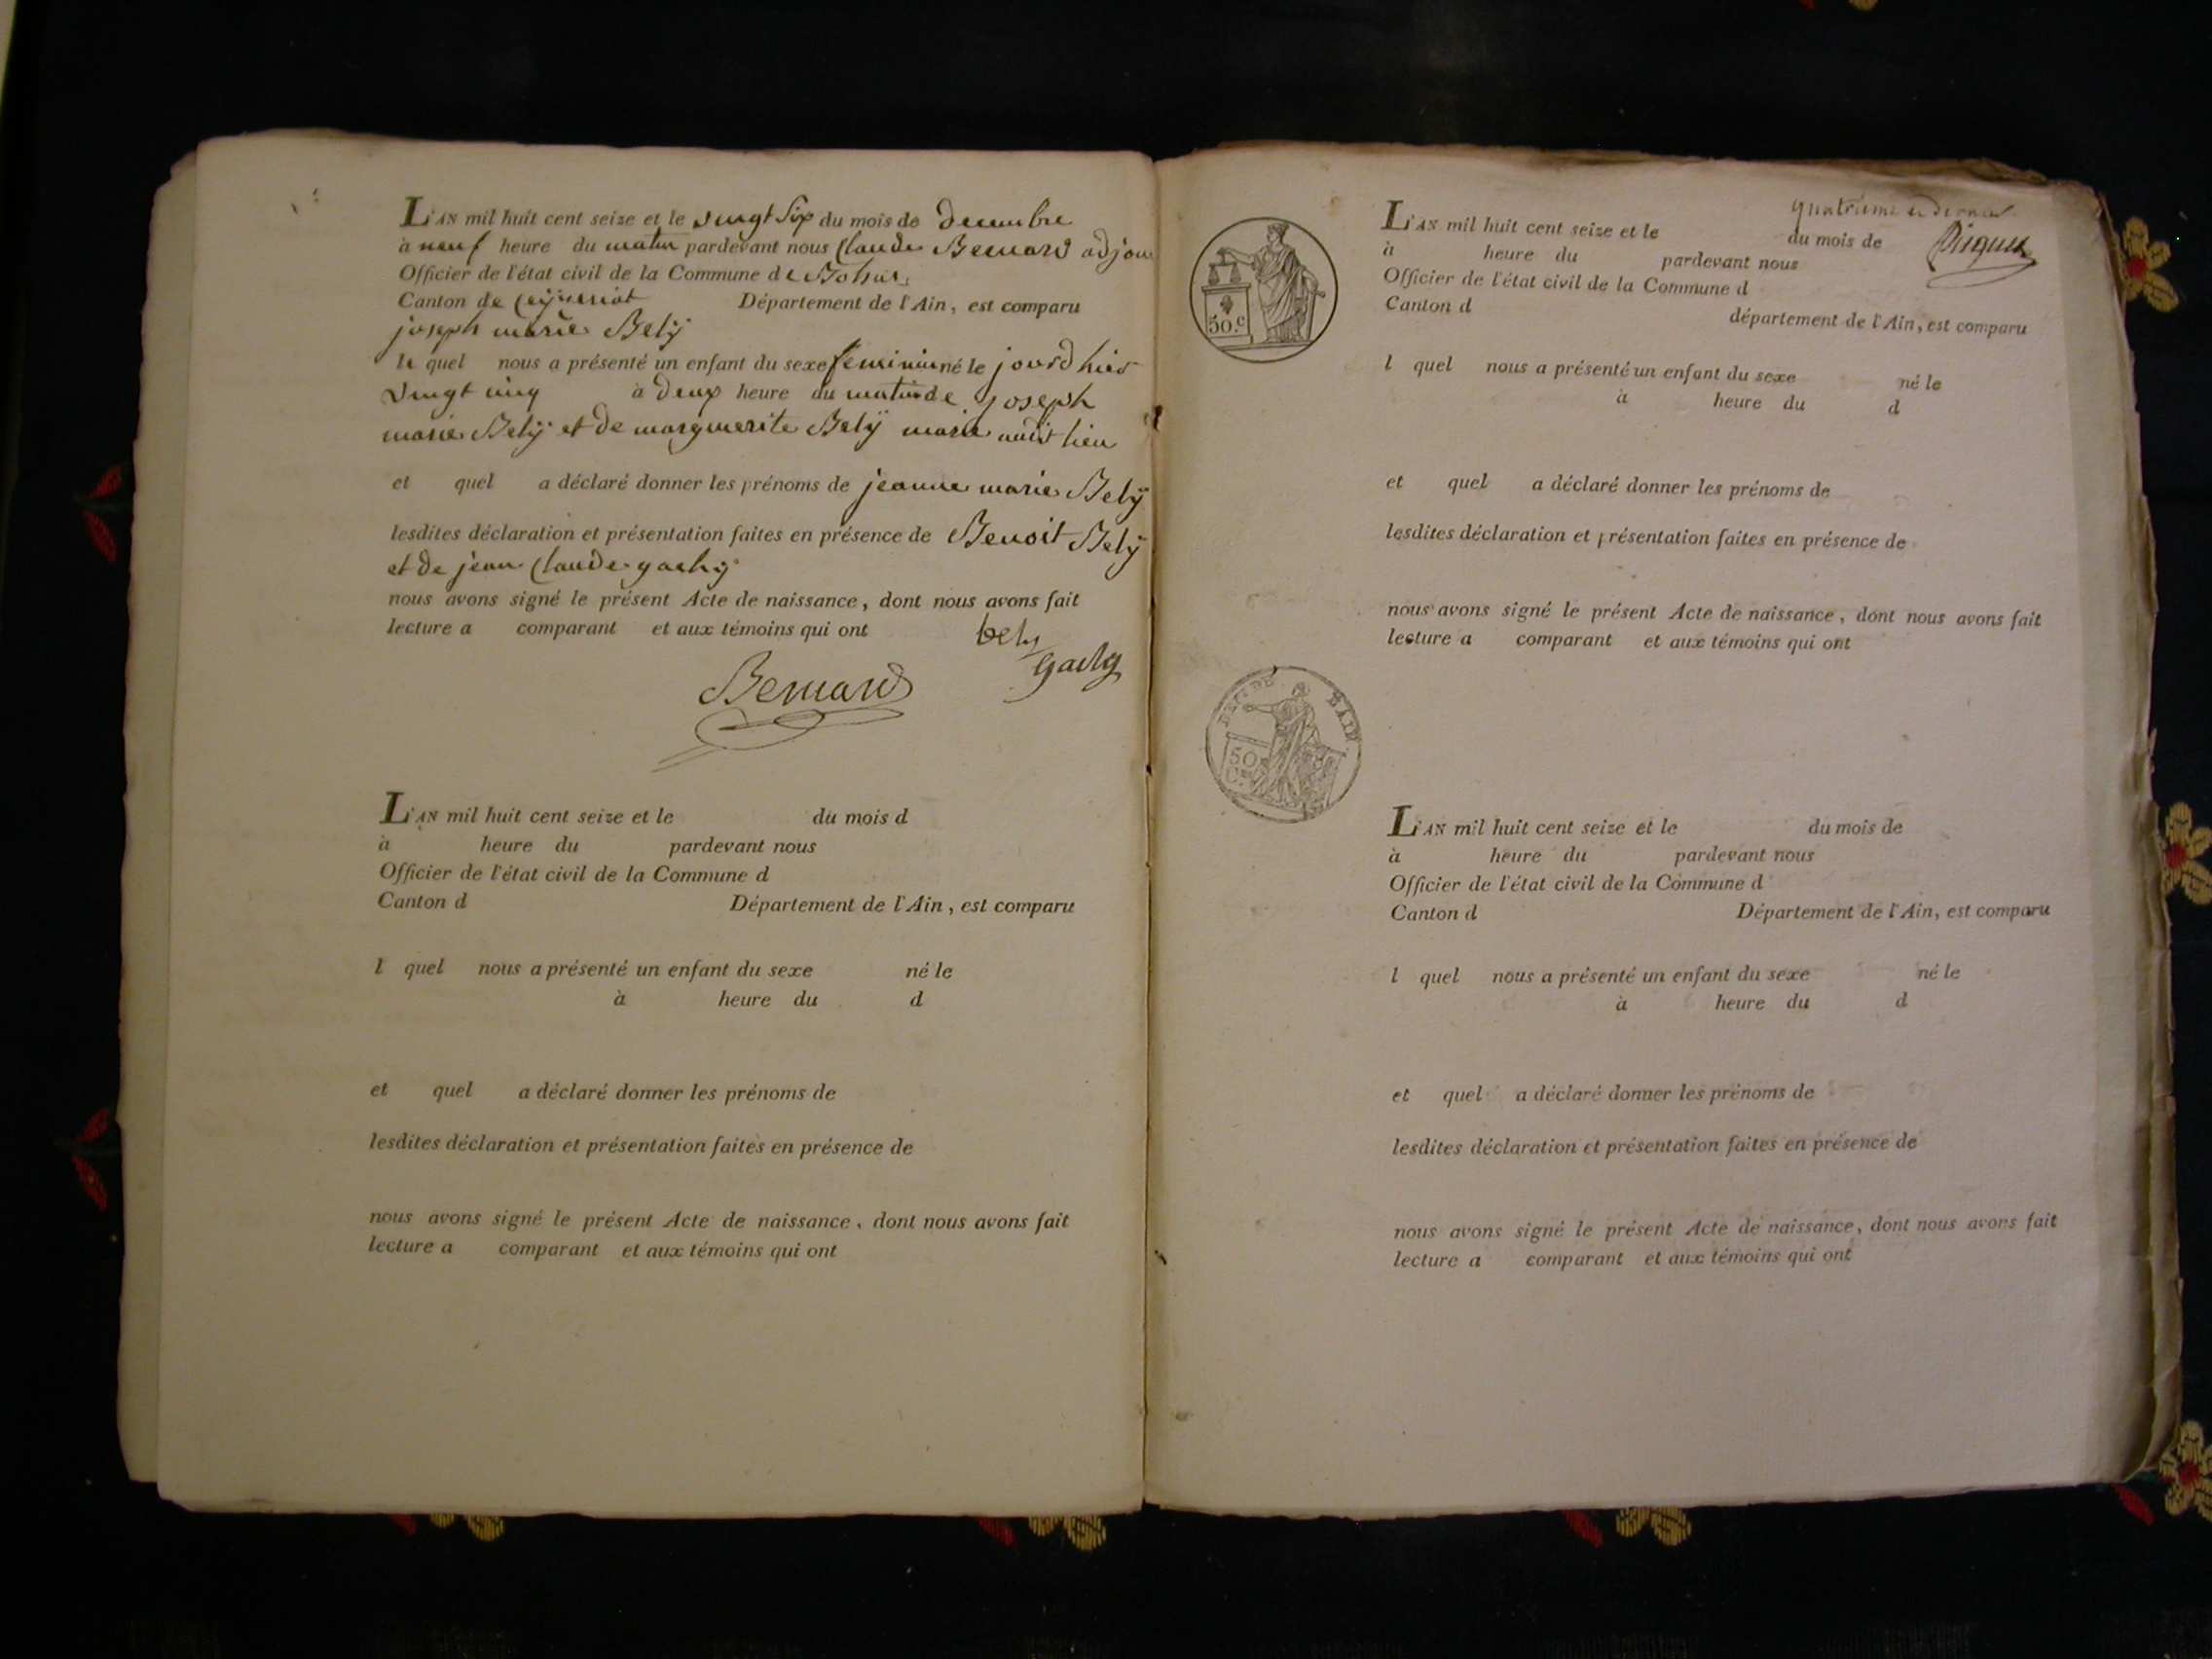 L'AN mil huit cent seize et le vingt six du mois de decembre
à neuf heure du matin pardevant nous Claude Bernard adjoin
Officier de l'état civil de la Commune de Bohas
Canton de Ceyzeriat Département de l'Ain, est comparu
joseph marie Bely
le quel nous a présenté un enfant du sexe feminin né le jourd hier
vingt cinq à deux heure du matin de joseph
marie Bely et de marguerite Bely marie audit lieu
et quel a déclaré donner les prénoms de jeanne marie Bely
lesdites déclaration et présentation faites en présence de Benoit Bely
et de jean Claude gachy
nous avons signé le présent Acte de naissance, dont nous avons fait
lecture a comparant et aux témoins qui ont
bely
Bernard
L'AN mil huit cent seize et le du mois d
à heure du pardevant nous
Officier de l'état civil de la Commune d
Canton d Département de l'Ain, est comparu
l quel nous a présenté un enfant du sexe né le
à heure du d
et quel a déclaré donner les prénoms de
lesdites déclaration et présentation faites en présence de
nous avons signé le présent Acte de naissance, dont nous avons fait
lecture a comparant et aux témoins qui ont
quatrieme et dernier
L'AN mil huit cent seize et le du mois de
à heure du pardevant nous
Officier de l'état civil de la Commune d
Canton d département de l'Ain, est comparu
50.c
l quel nous a présenté un enfant du sexe né le
à heure du d
et quel a déclaré donner les prénoms de
lesdites déclaration et présentation faites en présence de
nous avons signé le présent Acte de naissance, dont nous avons fait
lecture a comparant et aux témoins qui ont
50
L'AN mil huit cent seize et le du mois de
à heure du pardevant nous
Officier de l'état civil de la Commune d
Canton d Département de l'Ain, est comparu
l quel nous a présenté un enfant du sexe né le
à heure du d
et quel a déclaré donner les prénoms de
lesdites déclaration et présentation faites en présence de
nous avons signé le présent Acte de naissance, dont nous avons fait
lecture a comparant et aux témoins qui ont